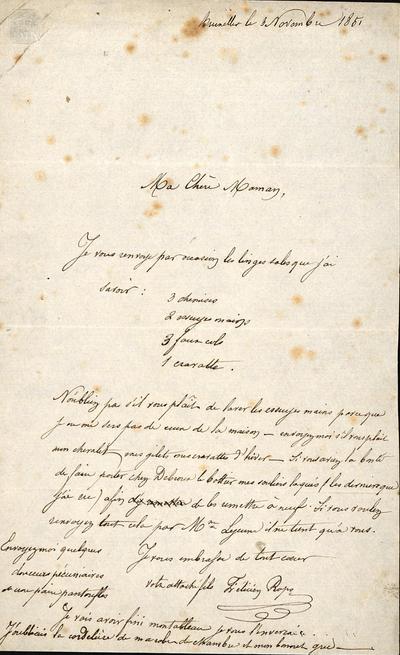 Bruxelles le 3 Novembre 1851
Ma Chère Maman,
Je vous renvoye par occasion les linges sales que j'ai
savoir :
3 chemises
2 essuyes mains
3 faux cols
1 cravatte .
N'oubliez pas s'il vous plaît de laver les essuyes mains parceque
je ne me sers pas de ceux de la maison — envoyez moi s'il vous plait
mon chevalet mes gilets mes cravattes d'hiver — Si vous aviez la bonté
de faire porter chez le bottier mes souliers laqués (les derniers que
j'ai eu) afin de les remettre à neuf. Si vous voulez
renvoyer tout cela par Mme Lejeune il ne tient qu'à vous.
Envoyez moi quelques
douceurs pécuniaires
et une paire pantoufles
Je vous embrasse de tout cœur
votre attaché fils Félicien Rops
Je vais avoir fini mon tableau je vous l'enverrai .
J'oubliais la cordelière de ma robe de chambre et mon bonnet